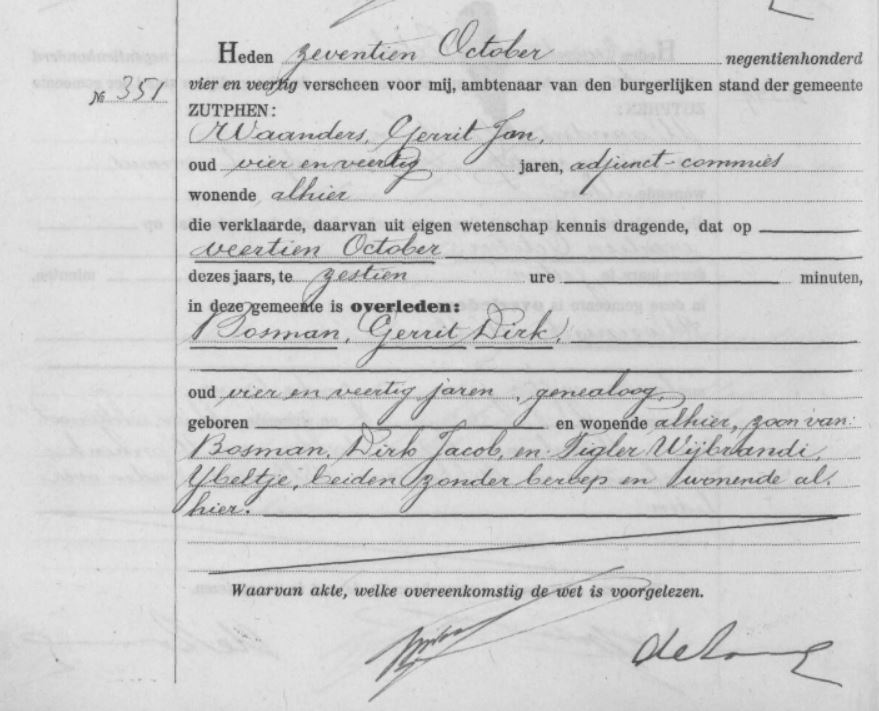 Heden zeventien October negentienhonderd
№ 351
vier en veertig verscheen voor mij, ambtenaar van den burgerlijken stand der gemeente
ZUTPHEN:
Waanders, Gerrit Jan,
oud vier en veertig jaren, adjunct-commies
wonende alhier
die verklaarde, daarvan uit eigen wetenschap kennis dragende, dat op
veertien October
dezes jaars, te zestien ure minuten,
in deze gemeente is overleden:
Bosman, Gerrit Dirk,
oud vier en veertig jaren, genealoog,
geboren en wonende alhier, zoon van:
Bosman, Dirk Jacob, en Tigler Wijbrandi,
Ybeltje, beiden zonder beroep en wonende al-
hier.
Waarvan akte, welke overeenkomstig de wet is voorgelezen.